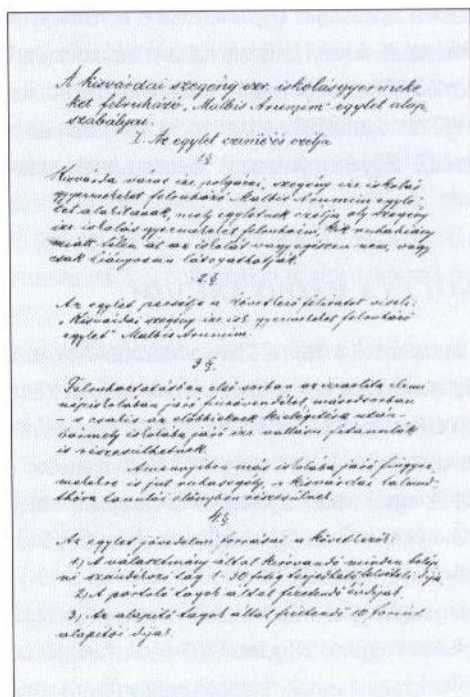 A kisvárdai szegény izr. iskolásgyermeke
ket felruházó Malbis Arumim egylet alap
szabályai.
I. Az egylet czime és czélja
1 §.
Kisvárda város izr. polgárai, szegény izr. iskolás
gyermekeket felruházó Malbis Arumim egyle
tet alakitanak, mely egyletnek czélja oly szegény
izr. iskolás gyermekeket felruházni, kik ruhahiány
miatt télen át az iskolát vagy egészen nem, vagy
csak hiányosan látogathatják.
2 §.
Az egylet pecsétje a következő feliratot viseli:
"Kisvárdai szegény izr. isk. gyermekeket felruházó
egylet" Malbis Arumim.
3 §.
Felruháztatásban első sorban az izraelita elemi
népiskolában járó növendékek, másodsorban
csakis az előbbieknek kielégitése után
bármely iskolába járó izr. vallásu fiutanulók
is részesülhetnek.
a mennyiben más iskolába járó
mekekre is jut ruhasegély, a kisvárdai
tanulók előnyben részesülnek.
4. §.
Az egylet jövedelmi forrásai a következők:
1.) A választmány által kirovandó minden belép
ni szándékozó tag 1-30 felvételi dij.
2. A pártoló tagok által fizetendő évdijak.
3.) Az alapitó tagok által fizetendő 10 forint
alapitói dijak.